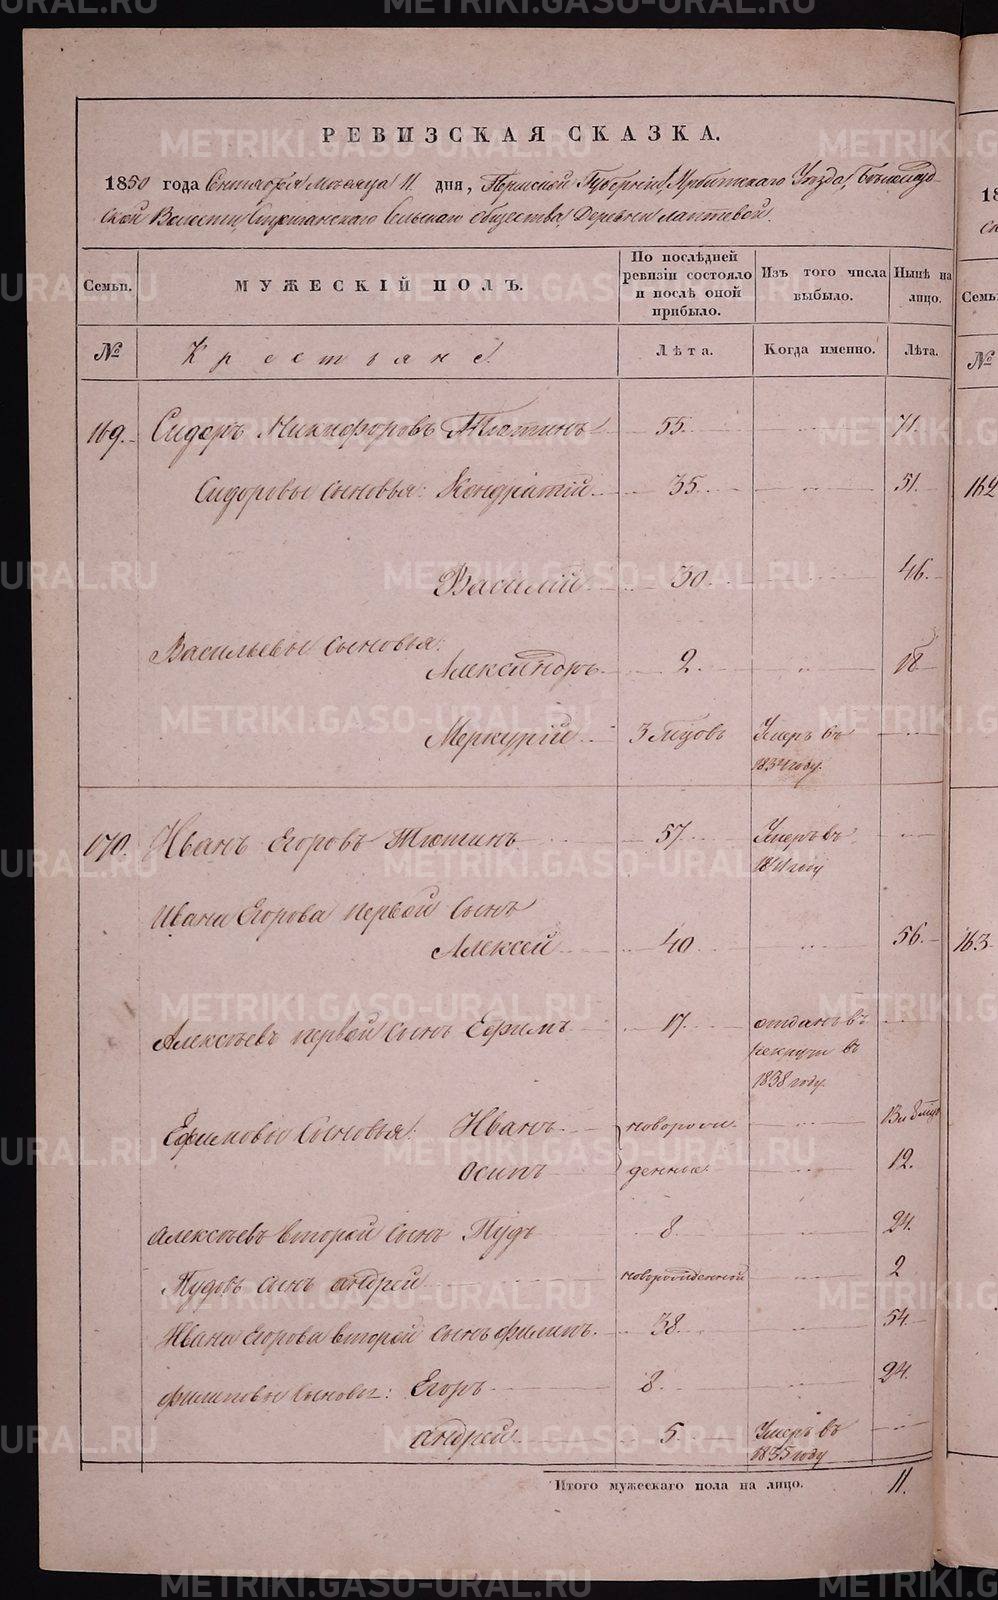 РЕВИЗСКАЯ СКАЗКА.
1850 года Сентября Месяца 11 дня, Пермской Губернии, Ирбитскаго Уезда,
ской Волости, Сельскаго общества, Деревни Лаптевой.
Семьи.
МУЖЕСКІЙ ПОЛЪ.
По послѣдней ревизіи состояло и послѣ оной прибыло.
Изъ того числа выбыло.
Нынѣ на лицо.
№
Крестьяне
Лѣта.
Когда именно.
Лѣта.
169. Сидоръ Никифоровъ Тютинъ 55. 71.
Сидоровы сыновья: Кондратій 35. 51.
Василій 30. 46.
Васильевы сыновья:
Александръ 2. 18
Меркурій 3 Умеръ въ
1834 году.
170. Иванъ Егоровъ Тютинъ 57. Умеръ въ
1841 году
Ивана Егорова первой сынъ
Алексей 40 56.
Алексеевъ первой сынъ Ефимъ 17. отданъ въ
рекруты въ
1838 году.
Ефимовы сыновья: Иванъ новорож-
Осипъ денные. 12.
Алексеевъ второй сынъ Пудъ 8 24.
Пудовъ сынъ андрей новорожденной 2
Ивана Егорова второй сынъ филипъ. 38. 54.
филиповы сыновья: Егоръ 8. 24.
андрей 5. Умеръ въ
1835 году
Итого мужескаго пола на лицо. 11.
18
Семьи
№
162
163
METRIKI.GASO-URAL.RU